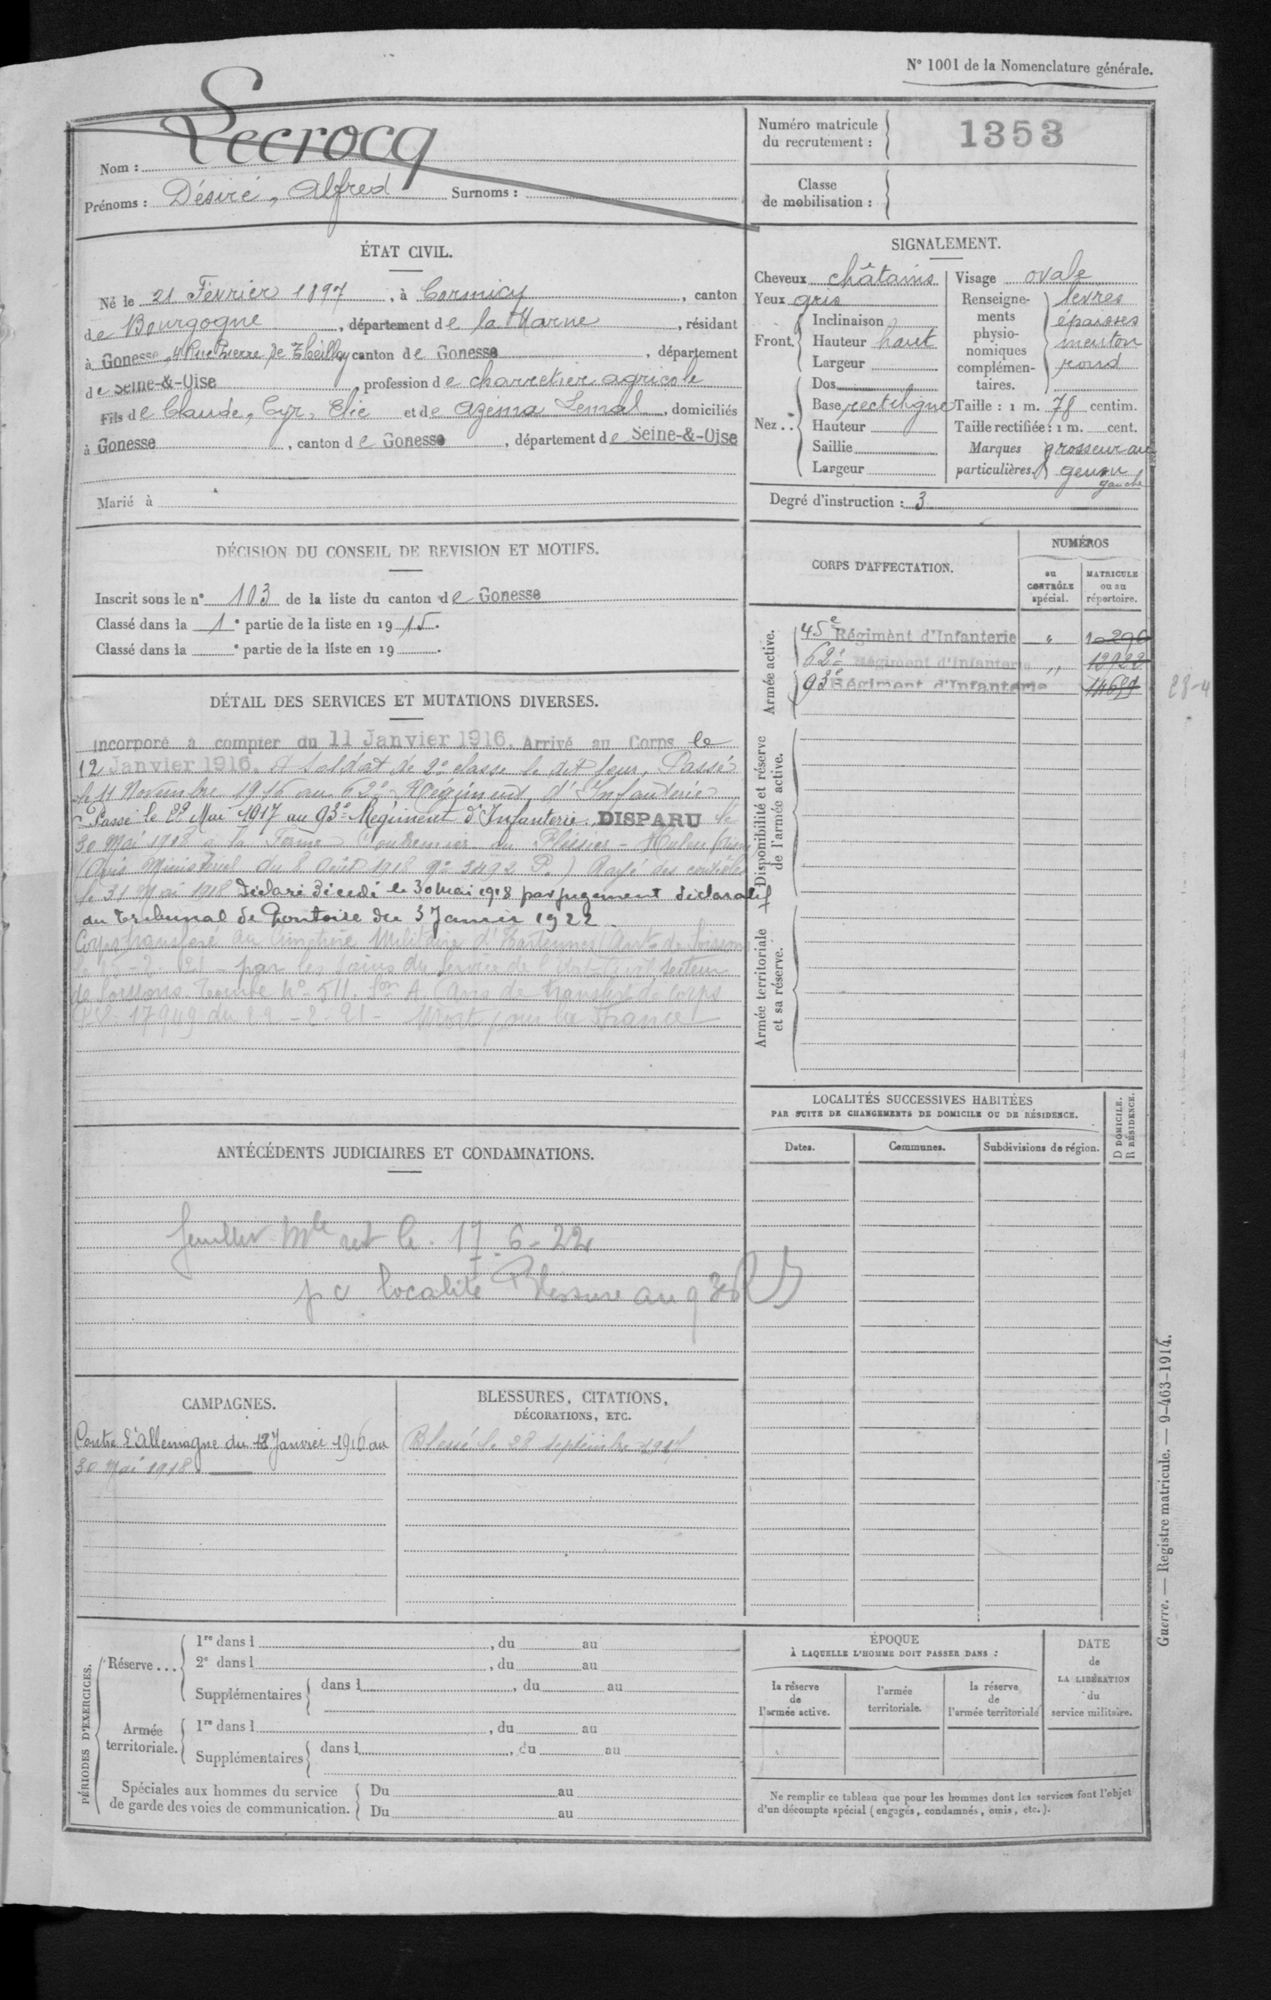 N° 1001 de la Nomenclature générale.
Nom : Lecrocq
Prénoms : Désiré, Alfred Surnoms :
Numéro matricule
du recrutement : 1353
Classe
de mobilisation :
ÉTAT CIVIL.
Né le 21 Février 1897, à Cormicy, canton
de Bourgogne, département de la Marne, résidant
à Gonesse, 4 Rue Pierre de Theilley canton de Gonesse, département
de Seine-&-Oise, profession de charretier agricole
Fils de Claude, Cyr, Elie et de Azéma Lemal, domiciliés
à Gonesse, canton de Gonesse, département de Seine-&-Oise
Marié à
SIGNALEMENT.
Cheveux châtains
Yeux gris
Front. Inclinaison
Hauteur haut
Largeur
Nez.. Dos
Base rectiligne
Hauteur
Saillie
Largeur
Visage ovale
Renseigne-
ments
physio-
nomiques
complémen-
taires.
lèvres
épaisses
menton
rond
Taille : 1 m. 78 centim.
Taille rectifiée : 1 m. cent.
Marques
particulières.
grosseur au
genou
gauche
Degré d'instruction : 3
DÉCISION DU CONSEIL DE REVISION ET MOTIFS.
Inscrit sous le n° 103 de la liste du canton de Gonesse
Classé dans la 1e partie de la liste en 1915.
Classé dans la e partie de la liste en 19 .
CORPS D'AFFECTATION.
NUMÉROS
au
CONTRÔLE
spécial.
MATRICULE
ou au
répertoire.
Armée active.
45e Régiment d'Infanterie " 10296
62e Régiment d'Infanterie " 12922
93e Régiment d'Infanterie 14699
Disponibilité et réserve
de l'armée active.
Armée territoriale
et sa réserve.
DÉTAIL DES SERVICES ET MUTATIONS DIVERSES.
Incorporé à compter du 11 Janvier 1916. Arrivé au Corps le
12 Janvier 1916. Soldat de 2e classe le dit jour. Passé
le 11 Novembre 1916 au 62e Régiment d'Infanterie
Passé le 22 Mai 1917 au 93e Régiment d'Infanterie. DISPARU le
30 Mai 1918 à la Ferme au Plessier - Huleu (Aisne)
(Avis Ministériel du 8 Août 1918 No 3492 P.) Rayé des contrôles
le 31 Mai 1918 Déclaré décédé le 30 mai 1918 par jugement déclaratif
du Tribunal de Pontoise du 3 Janvier 1922.
Corps transféré au Cimetière Militaire d'Hartennes (Arrt de Soissons
par les soins du Service de l'Etat-Civil, secteur
de Soissons Tombe No 511. Son A. (Avis de transfert de corps
17949 du 22-2-21 - Mort pour la France
ANTÉCÉDENTS JUDICIAIRES ET CONDAMNATIONS.
feuillet mle ret le 17-6-22
localité Blessure au 93e RI
LOCALITÉS SUCCESSIVES HABITÉES
PAR SUITE DE CHANGEMENTS DE DOMICILE OU DE RÉSIDENCE.
Dates.
Communes.
Subdivisions de région.
D DOMICILE.
R RÉSIDENCE.
CAMPAGNES.
Contre l'Allemagne du 12 Janvier 1916 au
30 Mai 1918.
BLESSURES, CITATIONS,
DÉCORATIONS, ETC.
Blessé le 28 septembre 1917
PÉRIODES D'EXERCICES.
Réserve...
1re dans l , du au
2e dans l , du au
Supplémentaires dans l , du au
Armée
territoriale.
1re dans l , du au
Supplémentaires dans l , du au
Spéciales aux hommes du service
de garde des voies de communication.
Du au
Du au
ÉPOQUE
À LAQUELLE L'HOMME DOIT PASSER DANS :
la réserve
de
l'armée active.
l'armée
territoriale.
la réserve
de
l'armée territoriale
DATE
de
LA LIBÉRATION
du
service militaire.
Ne remplir ce tableau que pour les hommes dont les services font l'objet
d'un décompte spécial (engagés, condamnés, omis, etc.).
Guerre. — Registre matricule. — 9-463-1914.